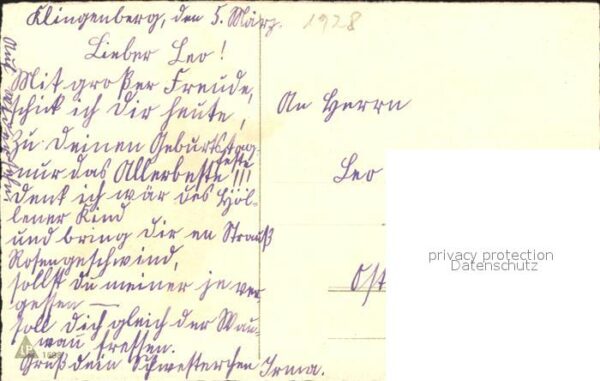 Klingenberg, den 5. März. 1928
Lieber Leo!
Mit großer Freude,
schick ich dir heute,
zu deinen Geburtstag-
feste
nur das Allerbeste!!!
denk ich wär des Höl-
lener Kind
und bring dir en Strauß
Rosen geschwind,
sollst du meiner je ver-
gessen —
soll dich gleich der Wau-
wau fressen.
Gruß dein Schwesterchen Irma.
Auf
An Herrn
Leo
Ost
privacy protection
Datenschutz